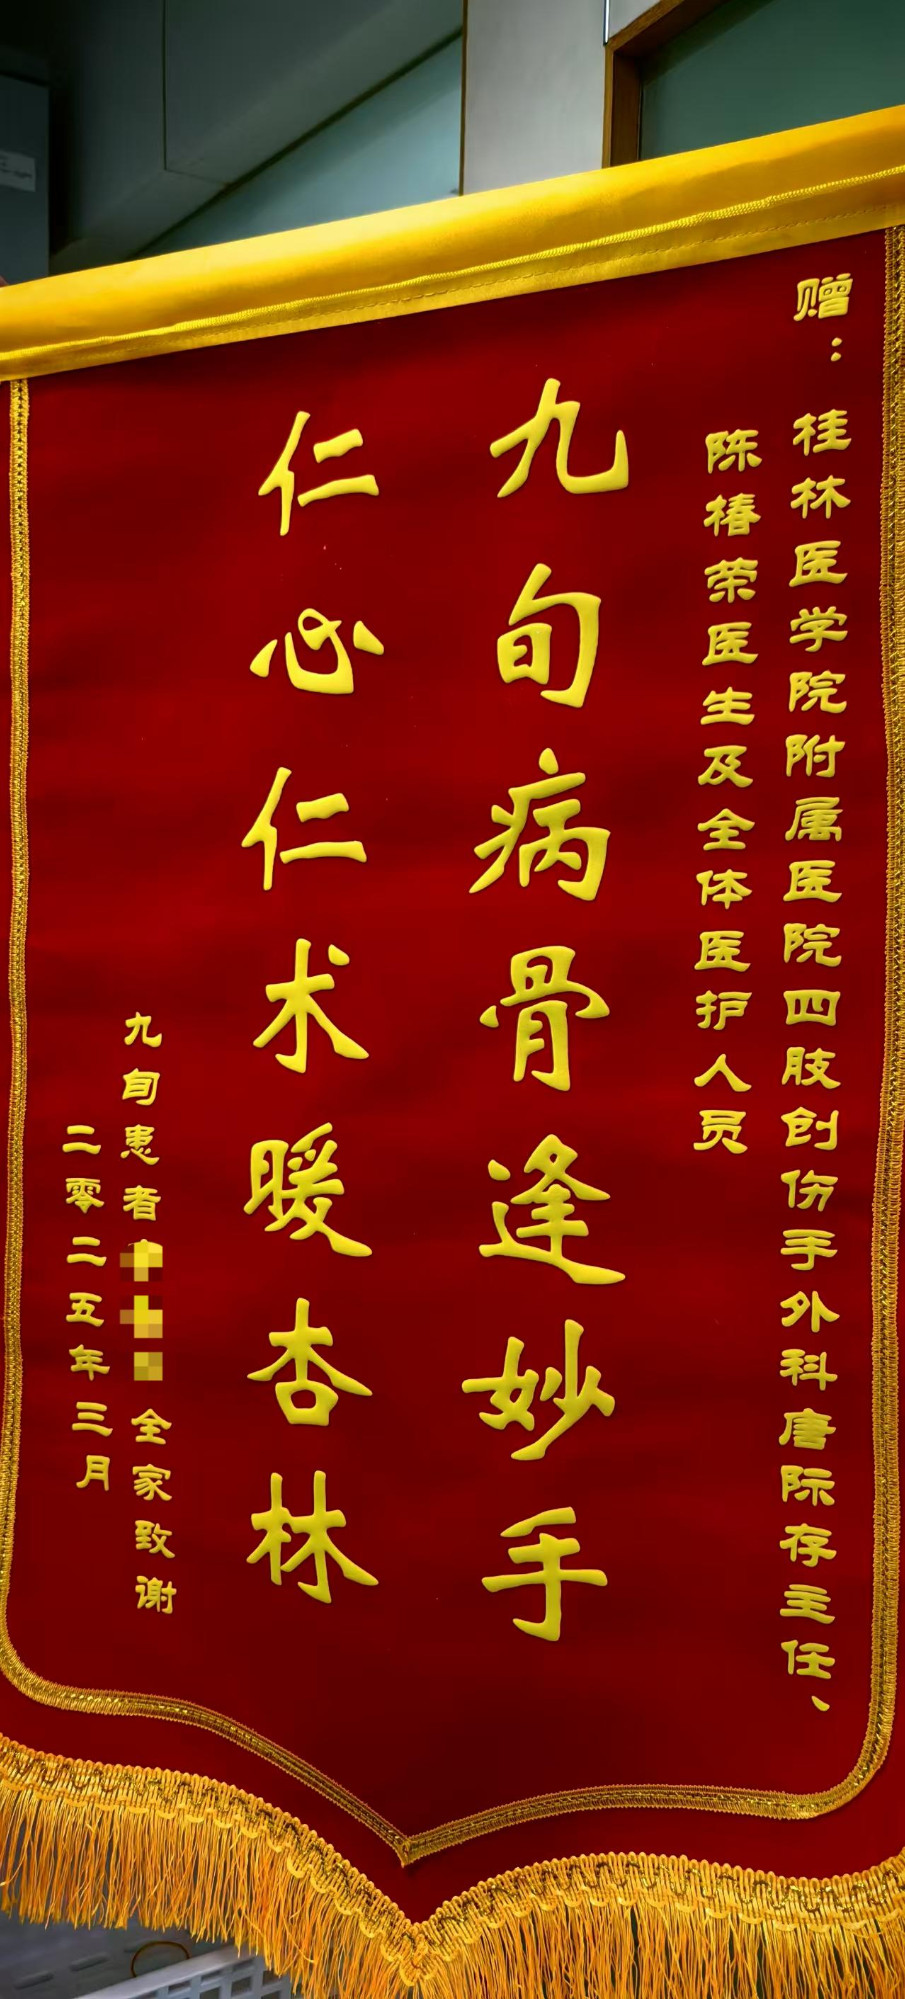 赠：
桂林医学院附属医院四肢创伤手外科唐际存主任、
陈椿荣医生及全体医护人员
九旬病骨逢妙手
仁心仁术暖杏林
九旬患者 全家致谢
二零二五年三月